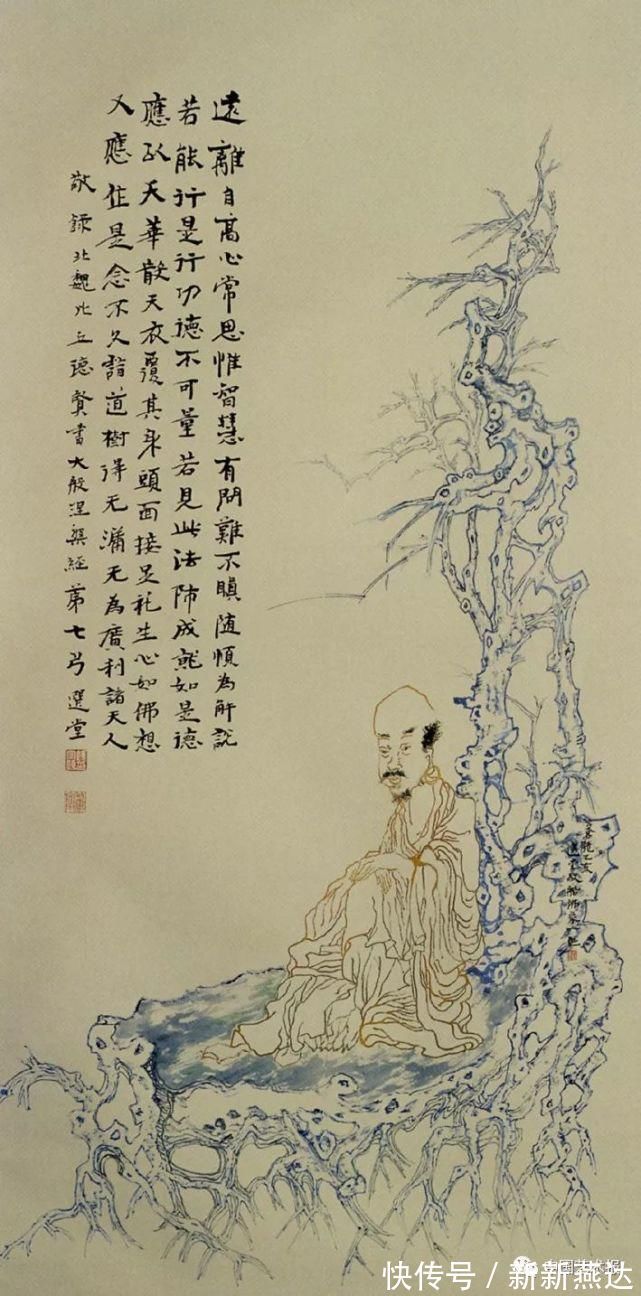 遠離自高心常思惟智慧有問難不瞋随順為解説
若能行是行功德不可量若見此法師成就如是德
應以天華散天衣覆其身頭面接足礼生心如佛想
又應作是念不久詣道樹得无漏无為廣利諸天人
敬録北魏比丘德賢書大般涅槃經第七弓 選堂
乙亥
選堂敬繪佛象
中国艺术报
快传号 / 新新燕达